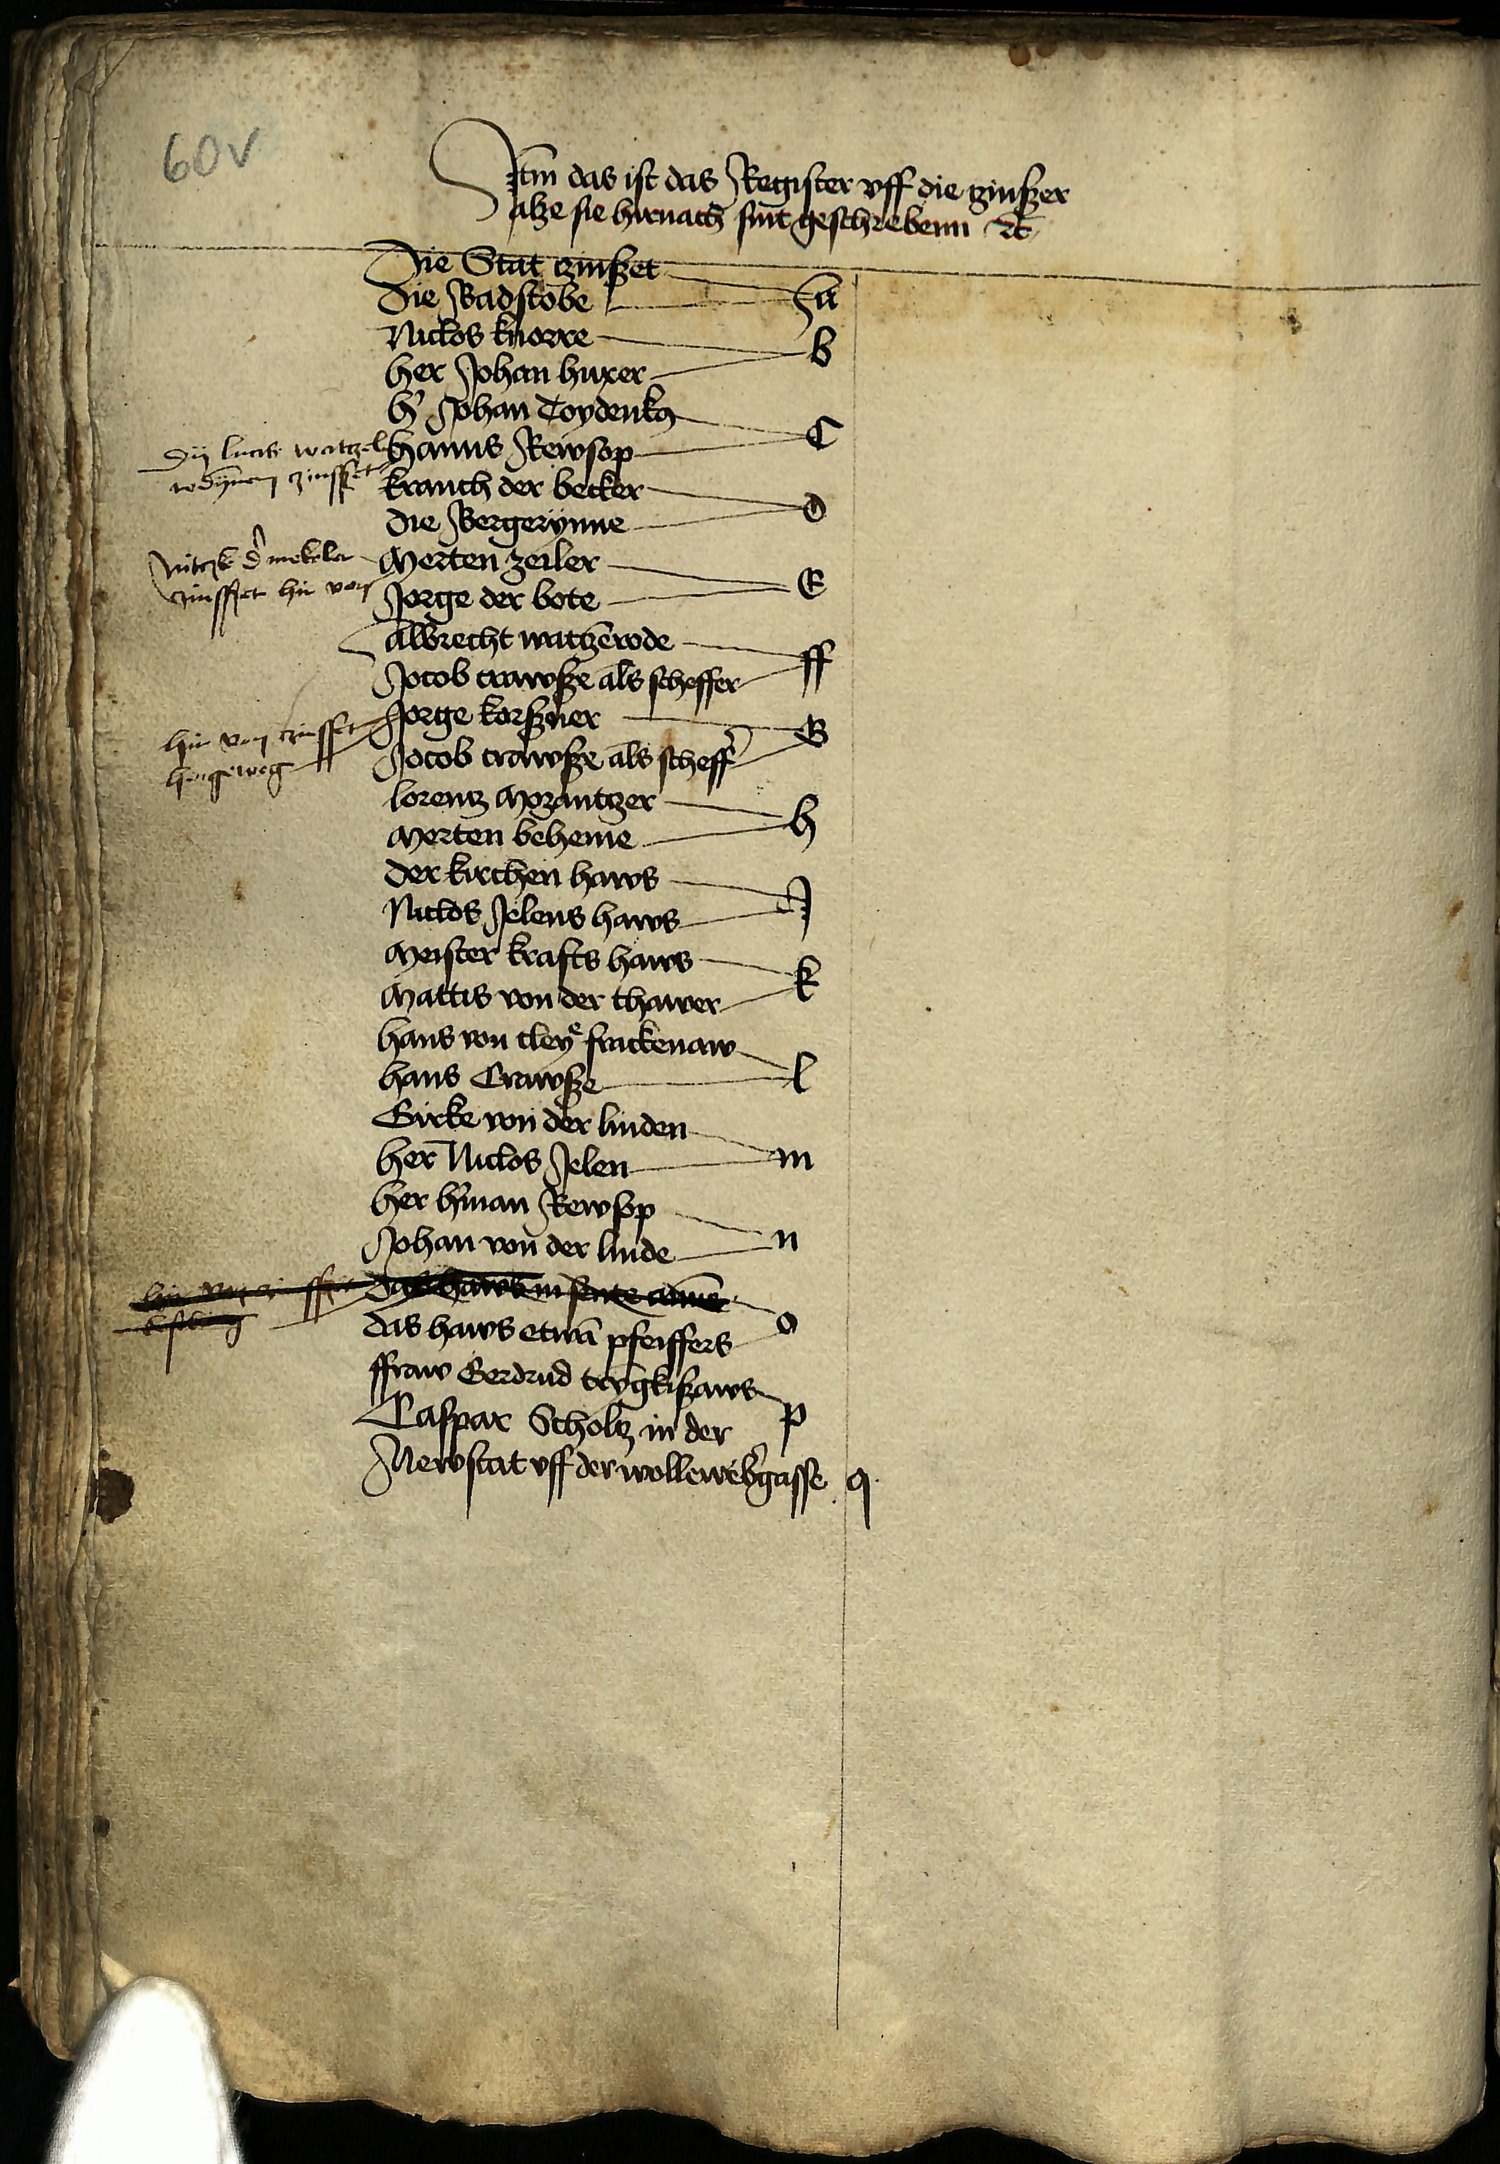 60v
Jtm das ist das Register vff die zinßer
alze sie hirnach sint geschrebenn etc
Die Stat czinßet
die Badstobe a
Niclos knorre
her Johan huxer b
h' Johan Toydenk
hanns Rewsop C
kranch der becker
die Bergerynne D
Merten zeiler
Jorge der bote E
Albrecht watzērode
Jocob crawße als scheffer ff
Jorge korßner
Jocob crawße als scheff' G
lorentz
Merten beheme h
der kirchen haws
Niclos Jelens haws J
Meister krafts haws
Mattis von der thawer k
hans von cleyē frackenaw
hans Crawße l
Girke von der linden
her Niclos Jelen m
her h'man Rewsop
Johan von der linde n
das haws in sente
das haws etwā pfeiffers o
ffraw Gerdrud
Caspar Scholtz in der p
Newstat vff der wolleweb'gasse q
watzel
zinsset
d' mekeler
czinsset hir von
hir von czinsset